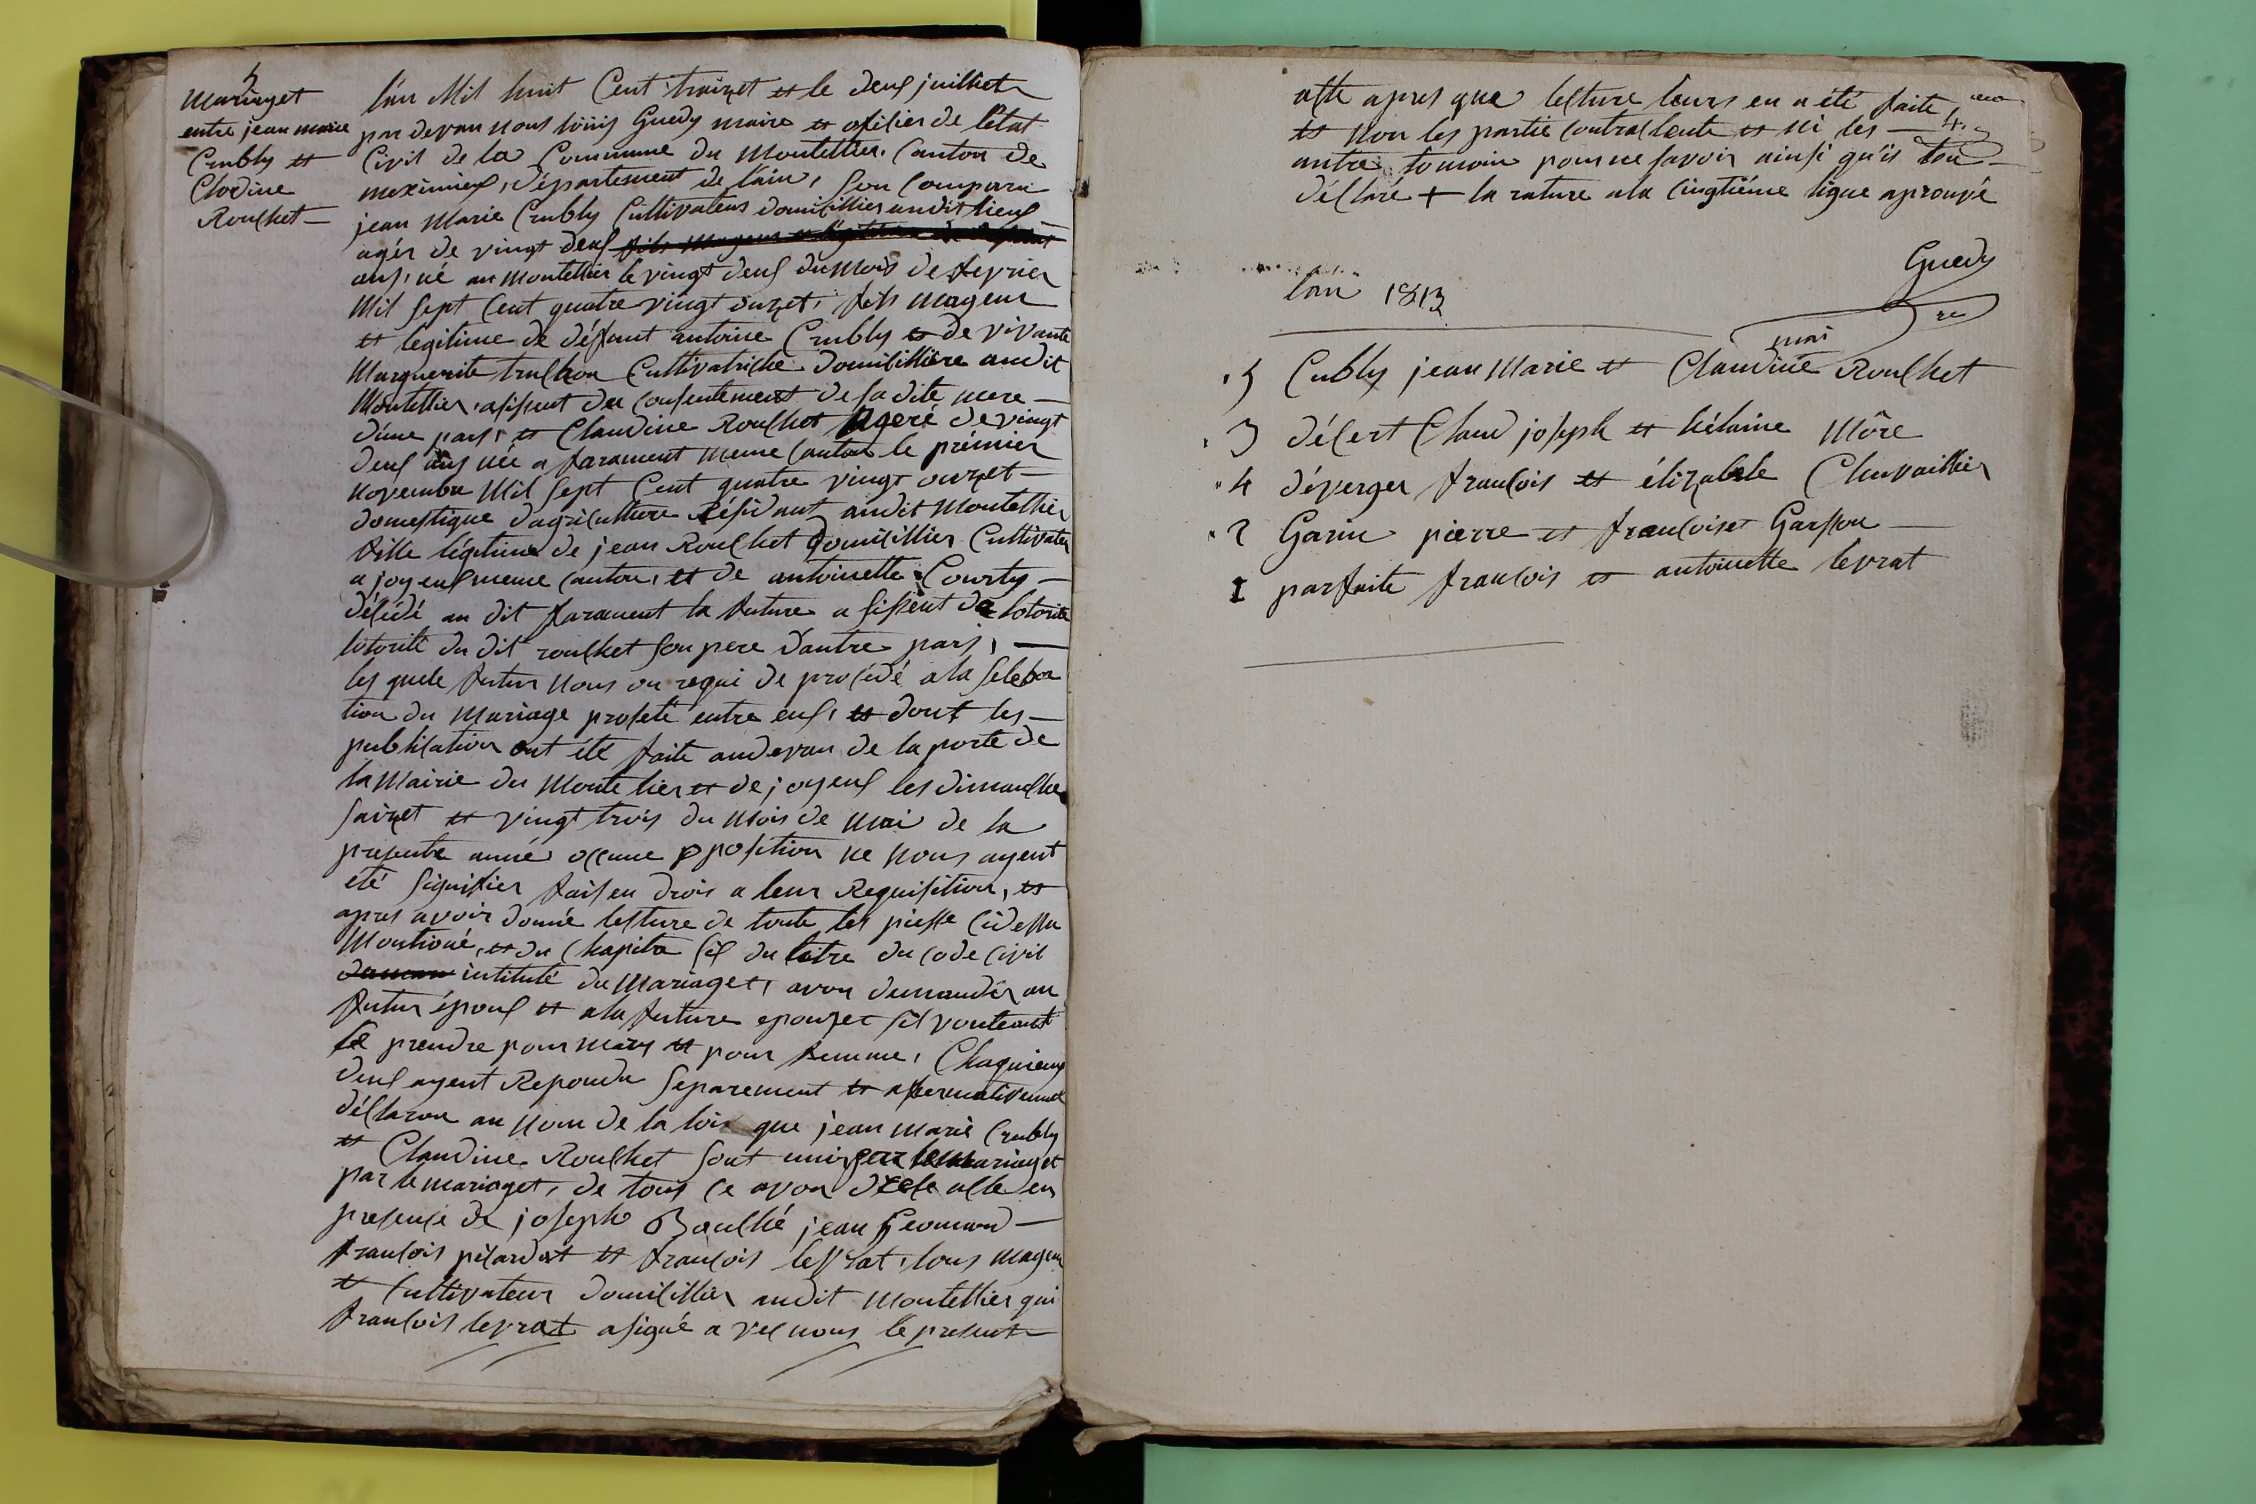 5
mariaget
entre jean marie
Crubly et
Clodine
Roulhet
l'an Mil huit Cent traizet et le deux juilliet
par devan nous louis Guedy maire et ofisier de l'état
Civil de la Commune du Montellier, Canton de
meximieux, département de l'ain, son Comparu
jean Marie Crubly Cultivateus domisillier audit lieux
agér de vingt deux fils mageur et légitime de
ans, né au Montellier le vingt deux du mois de fevrier
Mil sept Cent quatre vingt onzet, fils mageur
et legitime de défunt antoine Crubly et de vivante
Marguerite trulhon Cultivatriche domisillière audit
Montellier, asisent du consentement de sa dite mere
d'une part, et Claudine Roulhet Ageré de vingt
deux ans née a faramant meme Canton le prémier
novembre Mil sept Cent quatre vingt onzet
domestique dagriculture Résidant audit Montellier
fille légitime de jean Roulhet domisillier Cultivateu
a joyeux meme Canton, et de antoinette Courty
désédé au dit faramant la future asisent de lotorité
lotorité du dit roulhet son pere d'autre part,
les quele futur nous on requi de prosédé a la selebra
tion du Mariage projeté entre eux, et dont les
publication ont été faite audevan de la porte de
la Mairie du Montelier et de joyeux les dimanche
saizet et vingt trois du mois de mai de la
presente année occune opposition ne nous ayent
été signifier faisen drois a leur Requisition, et
apres avoir donné lesture de toute les piesse cidessu
Montioné, et du Chapitre six du titre du code civil
intitulé du Mariaget, avon demandér au
futur époux et a la future epouzet sil voulent
se prendre pour mary et pour femme, Chaquieng
deux ayent Repondu separement et afermativement
déclaron au nom de la lois que jean marie Crubly
et Claudine Roulhet sont unis par le mariaget
par le mariaget, de tous ce avon drésé alte en
presense de joseph Baulhé jean Geomard
fransois pitardet et fransois levrat, tous mageur
et Cultivateur domisillier audit Montellier qui
fransois levrat a signé avec nous le present
alte apres que lesture leurs en a été faite,
et non les partie contraltente et ni les
autre temoin pour ne savoir ainsi qu'is l'on
déclaré + la rature a la cingtième ligne aprouvé
Guedy
mai re
l'an 1813
5 Cubly jean Marie et Claudine Roulhet
3 délert Claud joseph et hélaine Môre
4 déverger fransois et élizabele Chevaillier
2 Garin pierre et fransoiset Garson
1 parfaite fransois et antoinette levrat